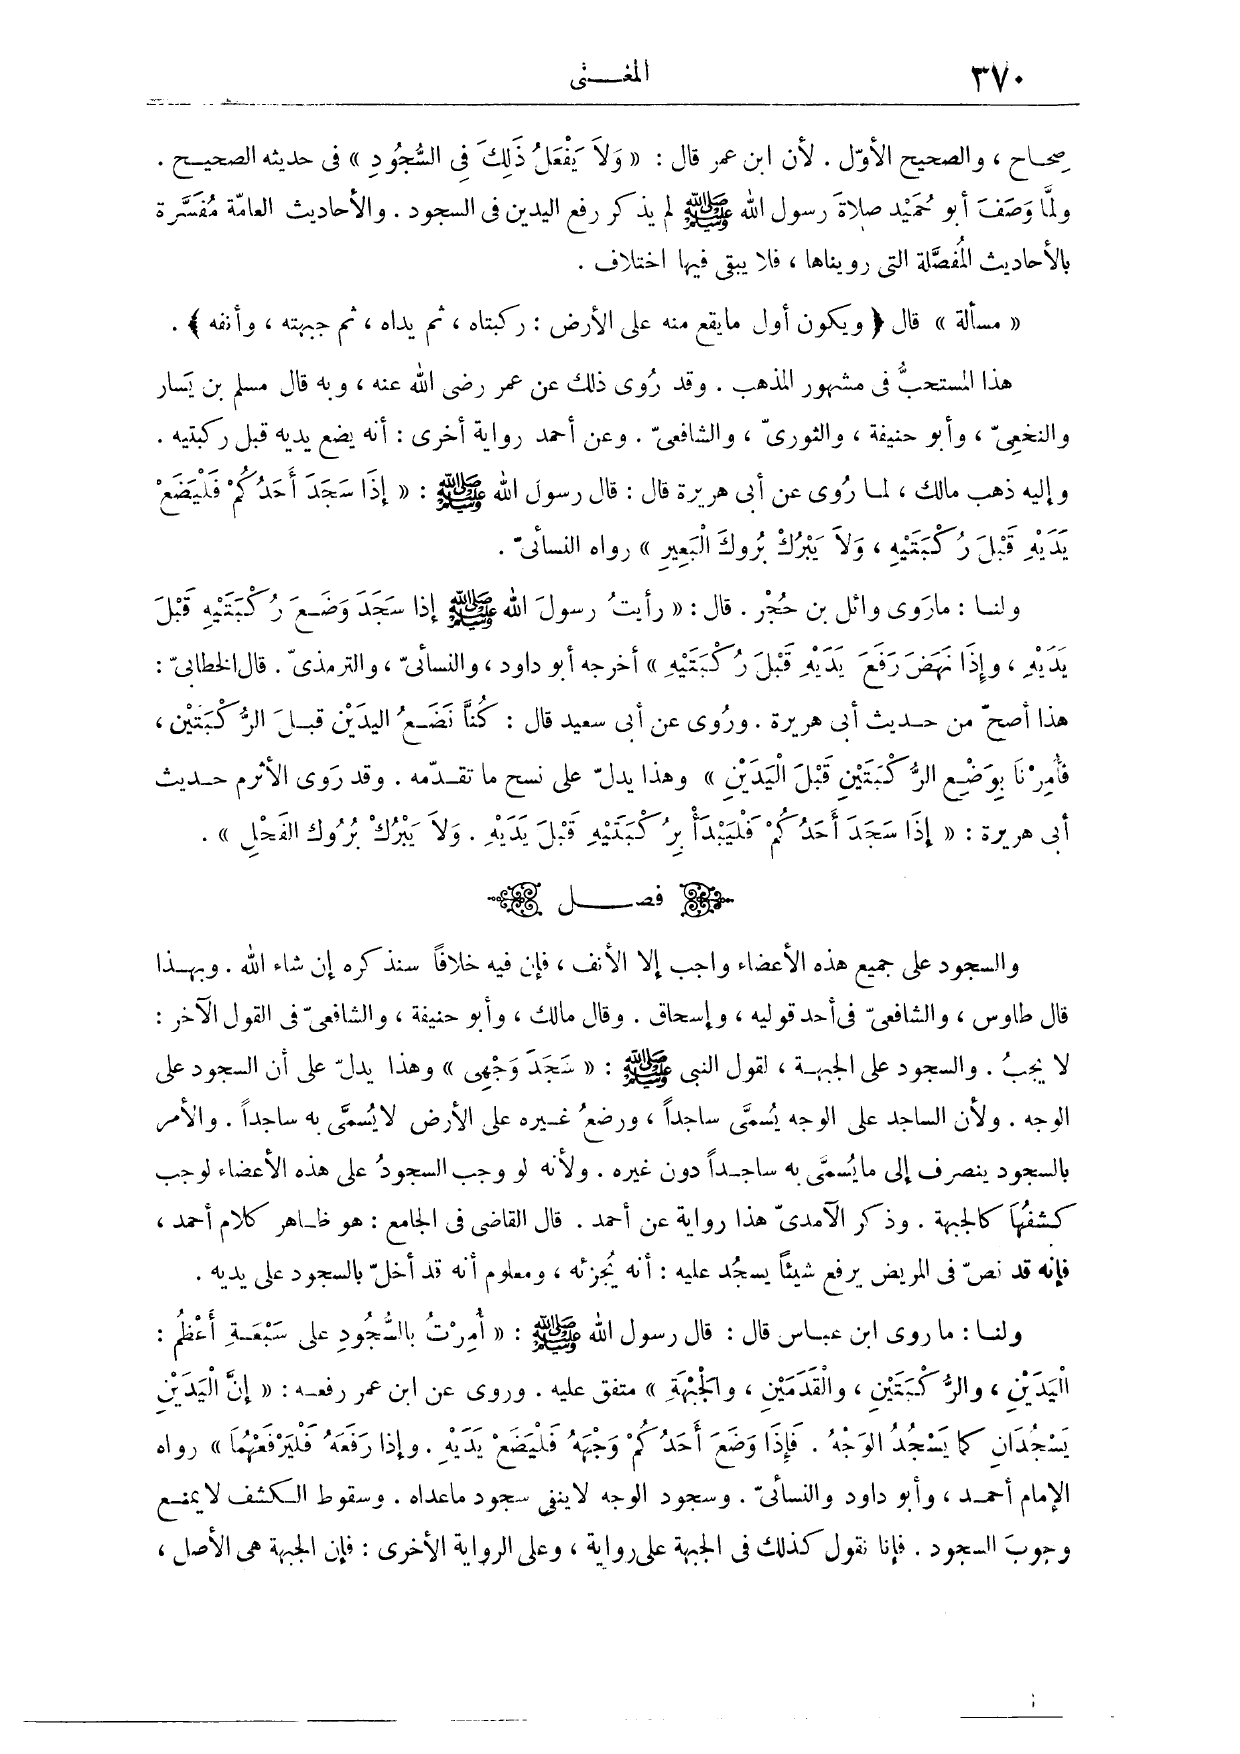 ٣٧٠
المغـنى
صِحاح ، والصحيح الأوّل . لأن ابن عمر قال : « وَلاَ يَفْعَلُ ذَلِكَ فِى السُّجُودِ » فى حديثه الصحيح .
ولمَّا وَصَفَ أبو حُمَيْد صلاةَ رسول الله ﷺ لم يذكر رفع اليدين فى السجود . والأحاديث العامّة مُفَسَّرة
بالأحاديث المُفصَّلة التى رويناها ، فلا يبقى فيها اختلاف .
« مسألة » قال ﴿ ويكون أول مايقع منه على الأرض : ركبتاه ، ثم يداه ، ثم جبهته ، وأنفه ﴾ .
هذا المستحبُّ فى مشهور المذهب . وقد رُوى ذلك عن عمر رضى الله عنه ، وبه قال مسلم بن يَسار
والنخعىّ ، وأبو حنيفة ، والثورىّ ، والشافعىّ . وعن أحمد رواية أخرى : أنه يضع يديه قبل ركبتيه .
وإليه ذهب مالك ، لما رُوى عن أبى هريرة قال : قال رسول الله ﷺ : « إذَا سَجَدَ أَحَدُكُمْ فَلْيَضَعْ
يَدَيْهِ قَبْلَ رُكْبَتَيْهِ ، وَلاَ يَبْرُكْ بُرُوكَ الْبَعِيرِ » رواه النسائىّ .
ولنا : مارَوى وائل بن حُجْر . قال : « رأيتُ رسولَ الله ﷺ إذا سَجَدَ وَضَعَ رُكْبَتَيْهِ قَبْلَ
يَدَيْهِ ، وإذَا نَهَضَ رَفَعَ يَدَيْهِ قَبْلَ رُكْبَتَيْهِ » أخرجه أبو داود ، والنسائىّ ، والترمذىّ . قال الخطابىّ :
هذا أصحّ من حديث أبى هريرة . ورُوى عن أبى سعيد قال : كُنَّا نَضَعُ اليدَيْن قبلَ الرُّكْبَتَيْن ،
فَأُمِرْنَا بِوَضْعِ الرُّكْبَتَيْنِ قَبْلَ الْيَدَيْنِ » وهذا يدلّ على نسخ ما تقدّمه . وقد رَوى الأثرم حديث
أبى هريرة : « إذَا سَجَدَ أَحَدُكُمْ فَلْيَبْدَأْ بِرُكْبَتَيْهِ قَبْلَ يَدَيْهِ . وَلاَ يَبْرُكْ بُرُوكَ الفَحْلِ » .
فصل
والسجود على جميع هذه الأعضاء واجب إلا الأنف ، فإن فيه خلافاً سنذكره إن شاء الله . وبهذا
قال طاوس ، والشافعىّ فى أحد قوليه ، وإسحاق . وقال مالك ، وأبو حنيفة ، والشافعىّ فى القول الآخر :
لا يجبُ . والسجود على الجبهة ، لقول النبى ﷺ : « سَجَدَ وَجْهِى » وهذا يدلّ على أن السجود على
الوجه . ولأن الساجد على الوجه يُسمَّى ساجداً ، ورضعُ غيره على الأرض لايُسمَّى به ساجداً . والأمر
بالسجود ينصرف إلى مايُسمَّى به ساجداً دون غيره . ولأنه لو وجب السجودُ على هذه الأعضاء لوجب
كشفُهَا كالجبهة . وذكر الآمدىّ هذا رواية عن أحمد . قال القاضى فى الجامع : هو ظاهر كلام أحمد ،
فإنه قد نصّ فى المريض يرفع شيئاً يسجُد عليه : أنه يُجزئه ، ومعلوم أنه قد أخلّ بالسجود على يديه .
ولنا : ما روى ابن عباس قال : قال رسول الله ﷺ : « أُمِرْتُ بالسُّجُودِ على سَبْعَةِ أَعْظُمُ :
الْيَدَيْنِ ، والرُّكْبَتَيْنِ ، والْقَدَمَيْنِ ، والْجَبْهَةِ » متفق عليه . وروى عن ابن عمر رفعه : « إنَّ الْيَدَيْنِ
يَسْجُدَانِ كما يَسْجُدُ الوَجْهُ . فَإِذَا وَضَعَ أَحَدُكُمْ وَجْهَهُ فَلْيَضَعْ يَدَيْهِ . وإذا رَفَعَهُ فَلْيَرْفَعْهُمَا » رواه
الإمام أحمد ، وأبو داود والنسائىّ . وسجود الوجه لاينفى سجود ماعداه . وسقوط الكشف لايمنع
وجوبَ السجود . فإنا نقول كذلك فى الجبهة على رواية ، وعلى الرواية الأخرى : فإن الجبهة هى الأصل ،